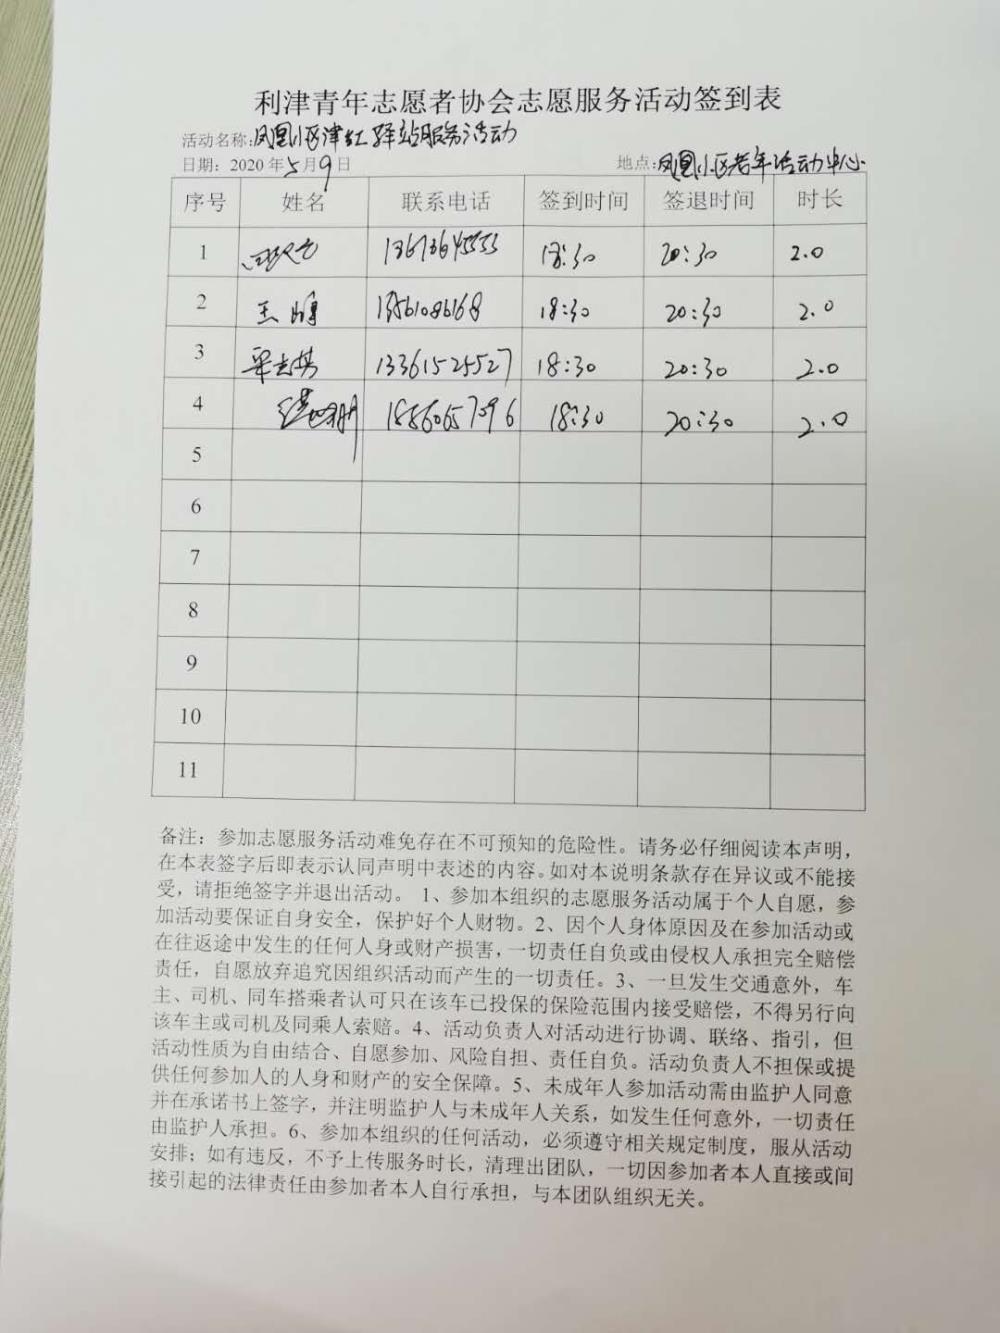 利津青年志愿者协会志愿服务活动签到表
活动名称:凤凰小区津红驿站服务活动
日期: 2020年5月9日 地点:凤凰小区老年活动中心
序号 姓名 联系电话 签到时间 签退时间 时长
1 18:30 20:30 2.0
2 王 18:30 20:30 2.0
3 13361525527 18:30 20:30 2.0
4 18:30 20:30 2.0
5
6
7
8
9
10
11
备注：参加志愿服务活动难免存在不可预知的危险性。请务必仔细阅读本声明，
在本表签字后即表示认同声明中表述的内容。如对本说明条款存在异议或不能接
受，请拒绝签字并退出活动。 1、参加本组织的志愿服务活动属于个人自愿，参
加活动要保证自身安全，保护好个人财物。2、因个人身体原因及在参加活动或
在往返途中发生的任何人身或财产损害，一切责任自负或由侵权人承担完全赔偿
责任，自愿放弃追究因组织活动而产生的一切责任。3、一旦发生交通意外，车
主、司机、同车搭乘者认可只在该车已投保的保险范围内接受赔偿，不得另行向
该车主或司机及同乘人索赔。4、活动负责人对活动进行协调、联络、指引，但
活动性质为自由结合、自愿参加、风险自担、责任自负。活动负责人不担保或提
供任何参加人的人身和财产的安全保障。5、未成年人参加活动需由监护人同意
并在承诺书上签字，并注明监护人与未成年人关系，如发生任何意外，一切责任
由监护人承担。6、参加本组织的任何活动，必须遵守相关规定制度，服从活动
安排；如有违反，不予上传服务时长，清理出团队，一切因参加者本人直接或间
接引起的法律责任由参加者本人自行承担，与本团队组织无关。